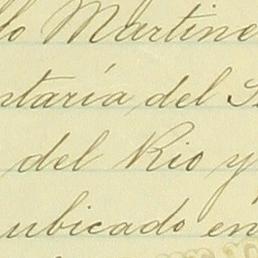 llo Martine
ntaría del S
del Rio y
ubicado en